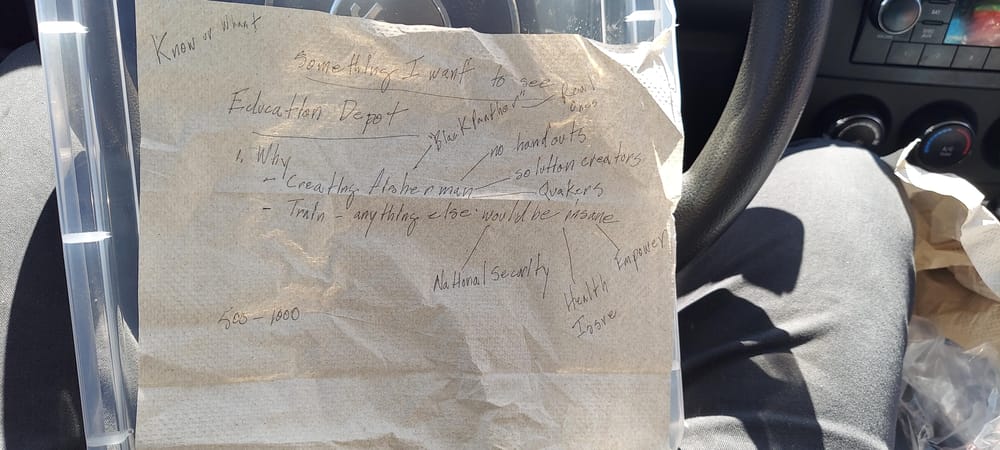 Know or Want
Something I want to see
Education Depot
"Black Panther"
Ones
1. Why
no handouts
- Creating fisherman
solution creators
Quakers
- Train - anything else would be insane
National Security
Empower
Health
Issue
500 - 1000
A/C